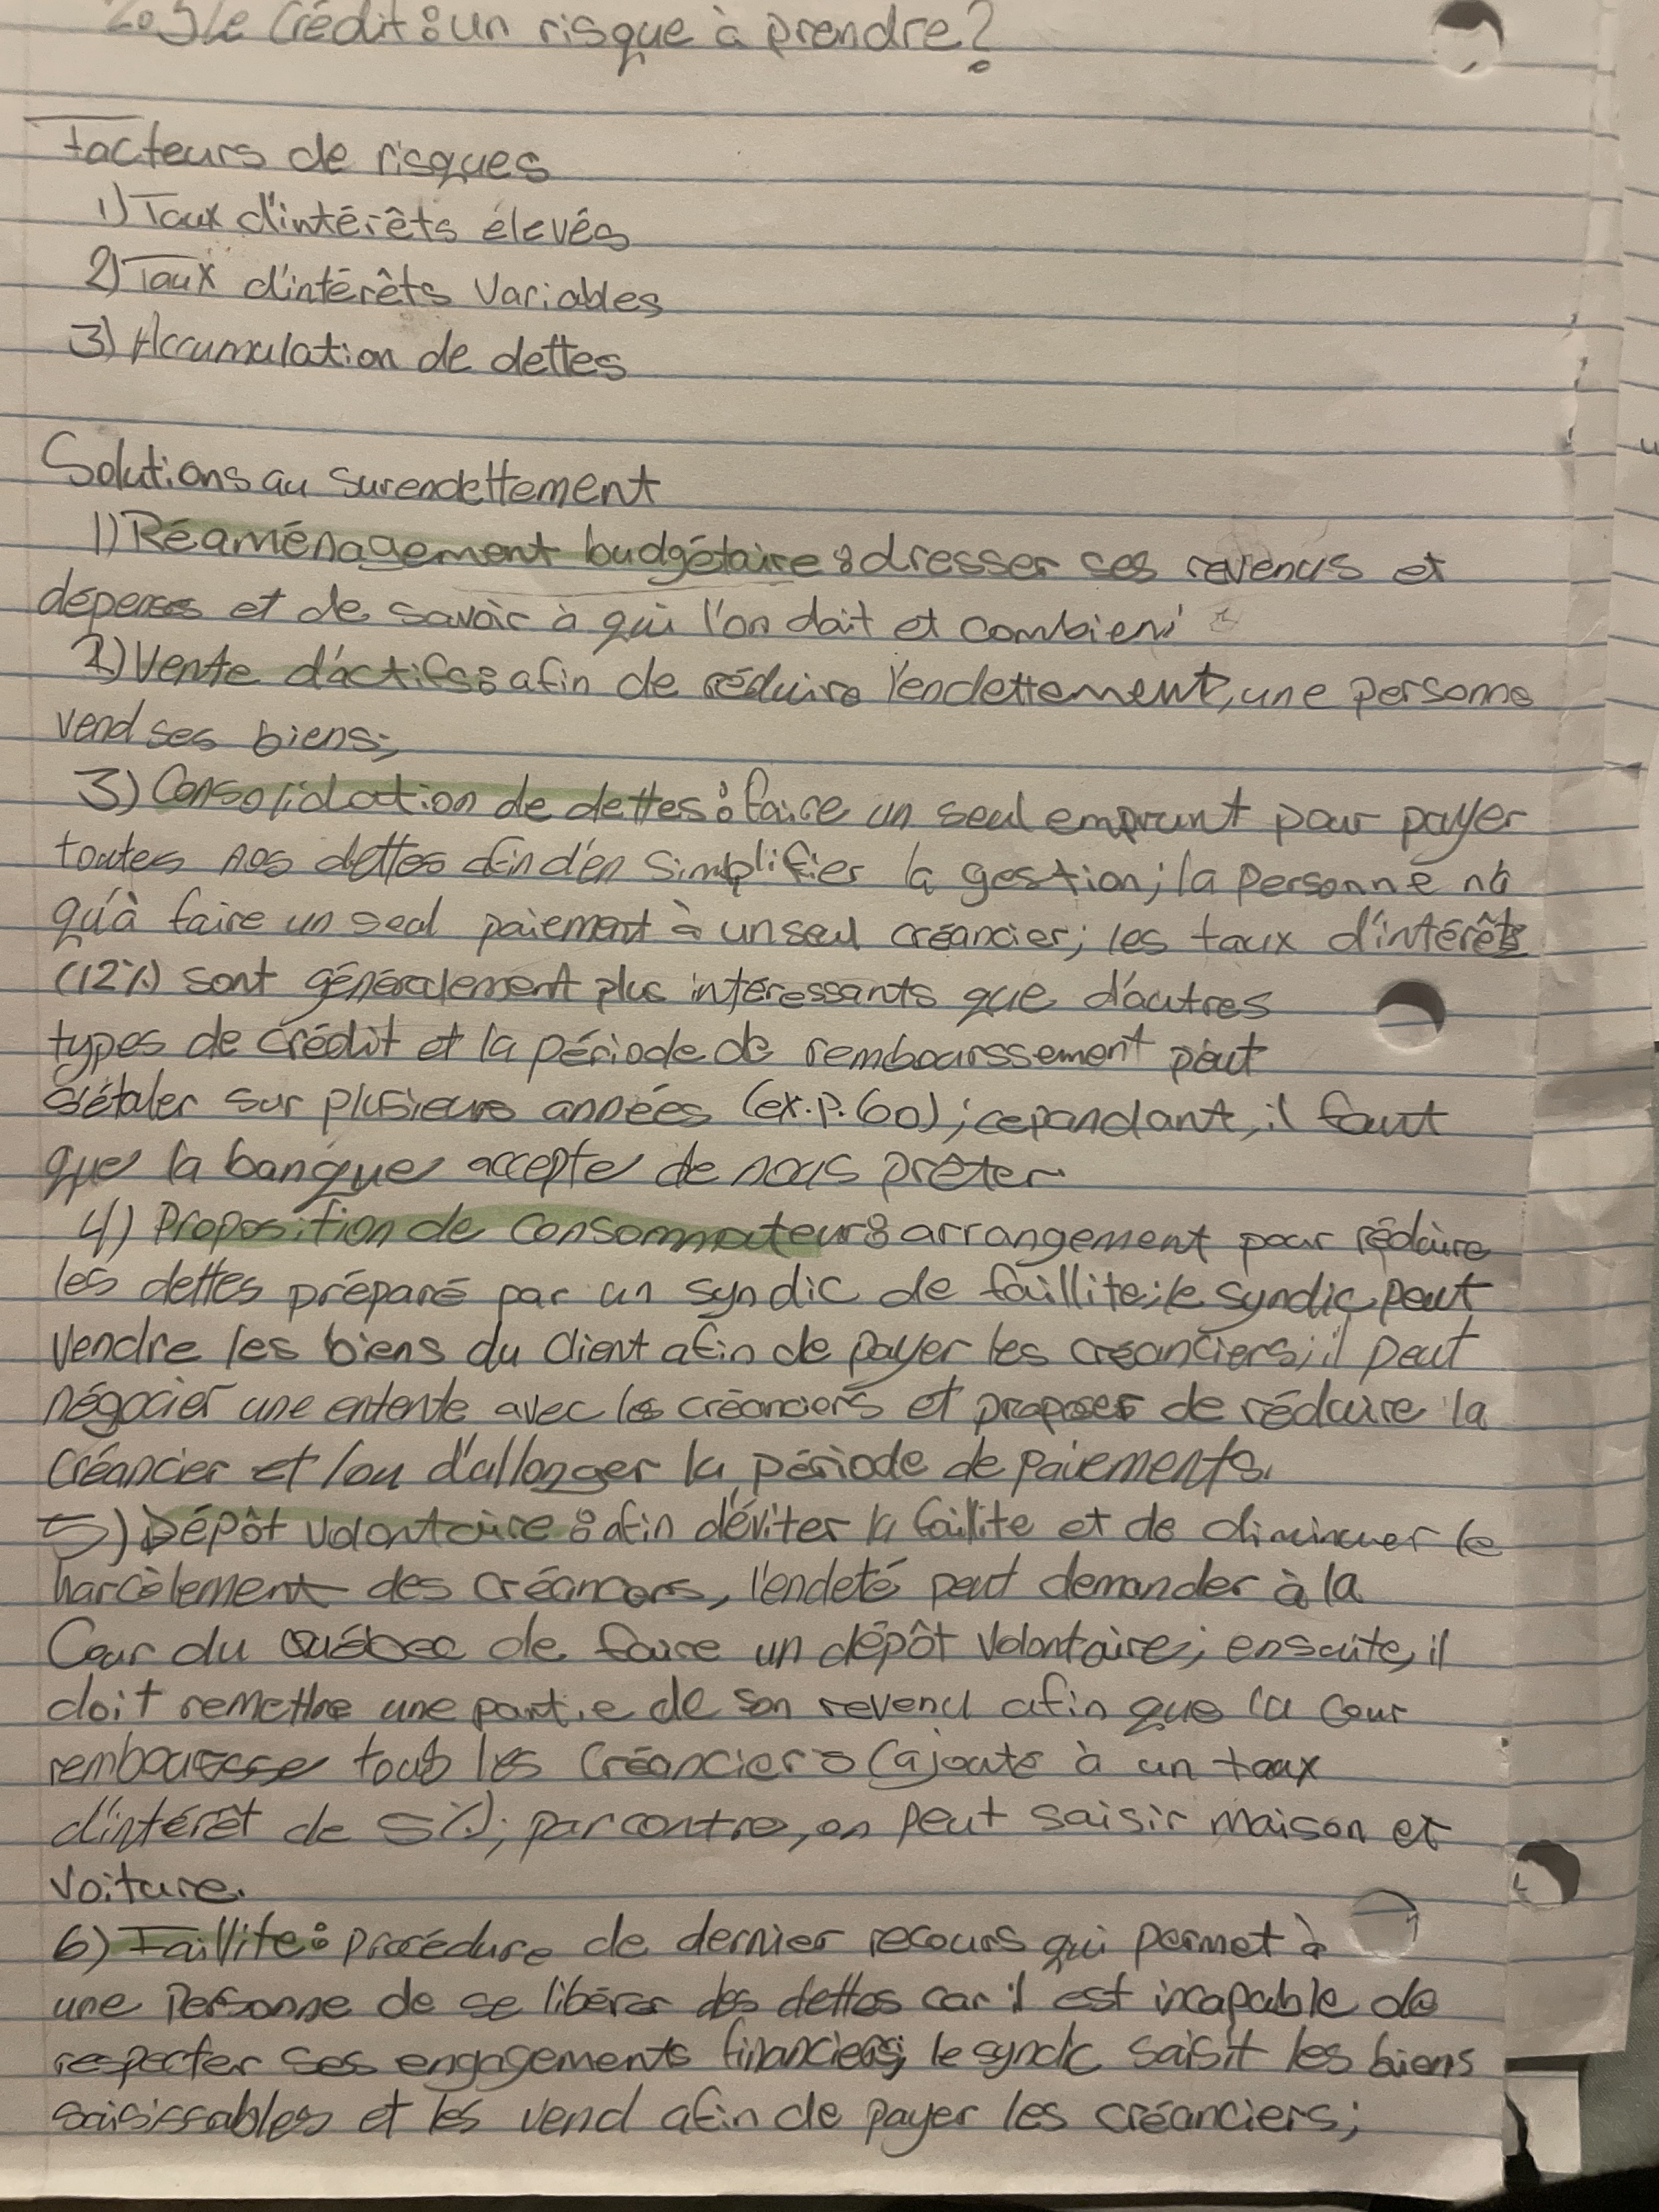 2.3 Le Crédit : un risque à prendre?
Facteurs de risques
1) Taux d'intérêts élevés
2) Taux d'intérêts variables
3) Accumulation de dettes
Solutions au surendettement
1) Réaménagement budgétaire : dresser ses revenus et
dépenses et de savoir à qui l'on doit et combien;
2) Vente d'actifs : afin de réduire l'endettement, une personne
vend ses biens;
3) Consolidation de dettes : faire un seul emprunt pour payer
toutes nos dettes afin d'en simplifier la gestion; la personne n'a
qu'à faire un seul paiement à un seul créancier; les taux d'intérêts
(12%) sont généralement plus intéressants que d'autres
types de crédit et la période de rembourssement peut
s'étaler sur plusieurs années (ex. p. 60); cependant, il faut
que la banque accepte de nous prêter.
4) Proposition de consommateur : arrangement pour réduire
les dettes préparé par un syndic de faillite; le syndic peut
vendre les biens du client afin de payer les créanciers; il peut
négocier une entente avec les créanciers et proposer de réduire la
créancier et/ou d'allonger la période de paiements.
5) Dépôt volontaire : afin d'éviter la faillite et de diminuer le
harcèlement des créancers, l'endeté peut demander à la
Cour du Québec de faire un dépôt volontaire; ensuite, il
doit remettre une partie de son revenu afin que la Cour
rembourse tous les créanciers (ajouté à un taux
d'intérêt de 5%); par contre, on peut saisir maison et
voiture.
6) Faillite : procédure de dernier recours qui permet à
une personne de se libérer des dettes car il est incapable de
respecter ses engagements financiers; le syndic saisit les biens
saisissables et les vend afin de payer les créanciers;